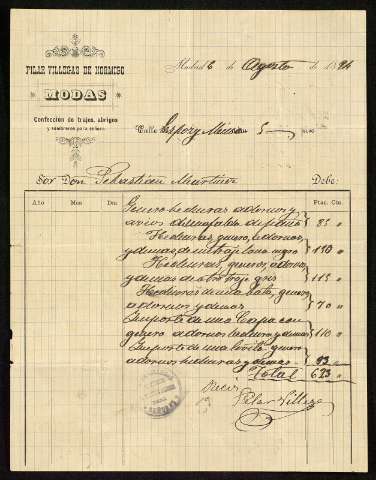 PILAR VILLEGAS DE HORMIGO
MODAS
Confección de trajes, abrigos
y sombreros para señora.
Madrid 6 de Agosto de 1894
Calle 5
Sor Don Sebastian Martinez Debe:
Año Mes Día Ptas. Cts.
Genero hechuras adornos y
avios 85 "
Hechuras, genero, adornos
y demas de un traje lana negro 150 "
Hechuras, genero, adornos
y demas de otro traje gris 115 "
Hechuras de una bata, genero
adornos y demas 70 "
Importe de una Capa con
genero adornos hechura y demas 110 "
Importe de una genero
adornos hechuras y demas 93 "
Total 623 "
Recibí
Pilar Villegas